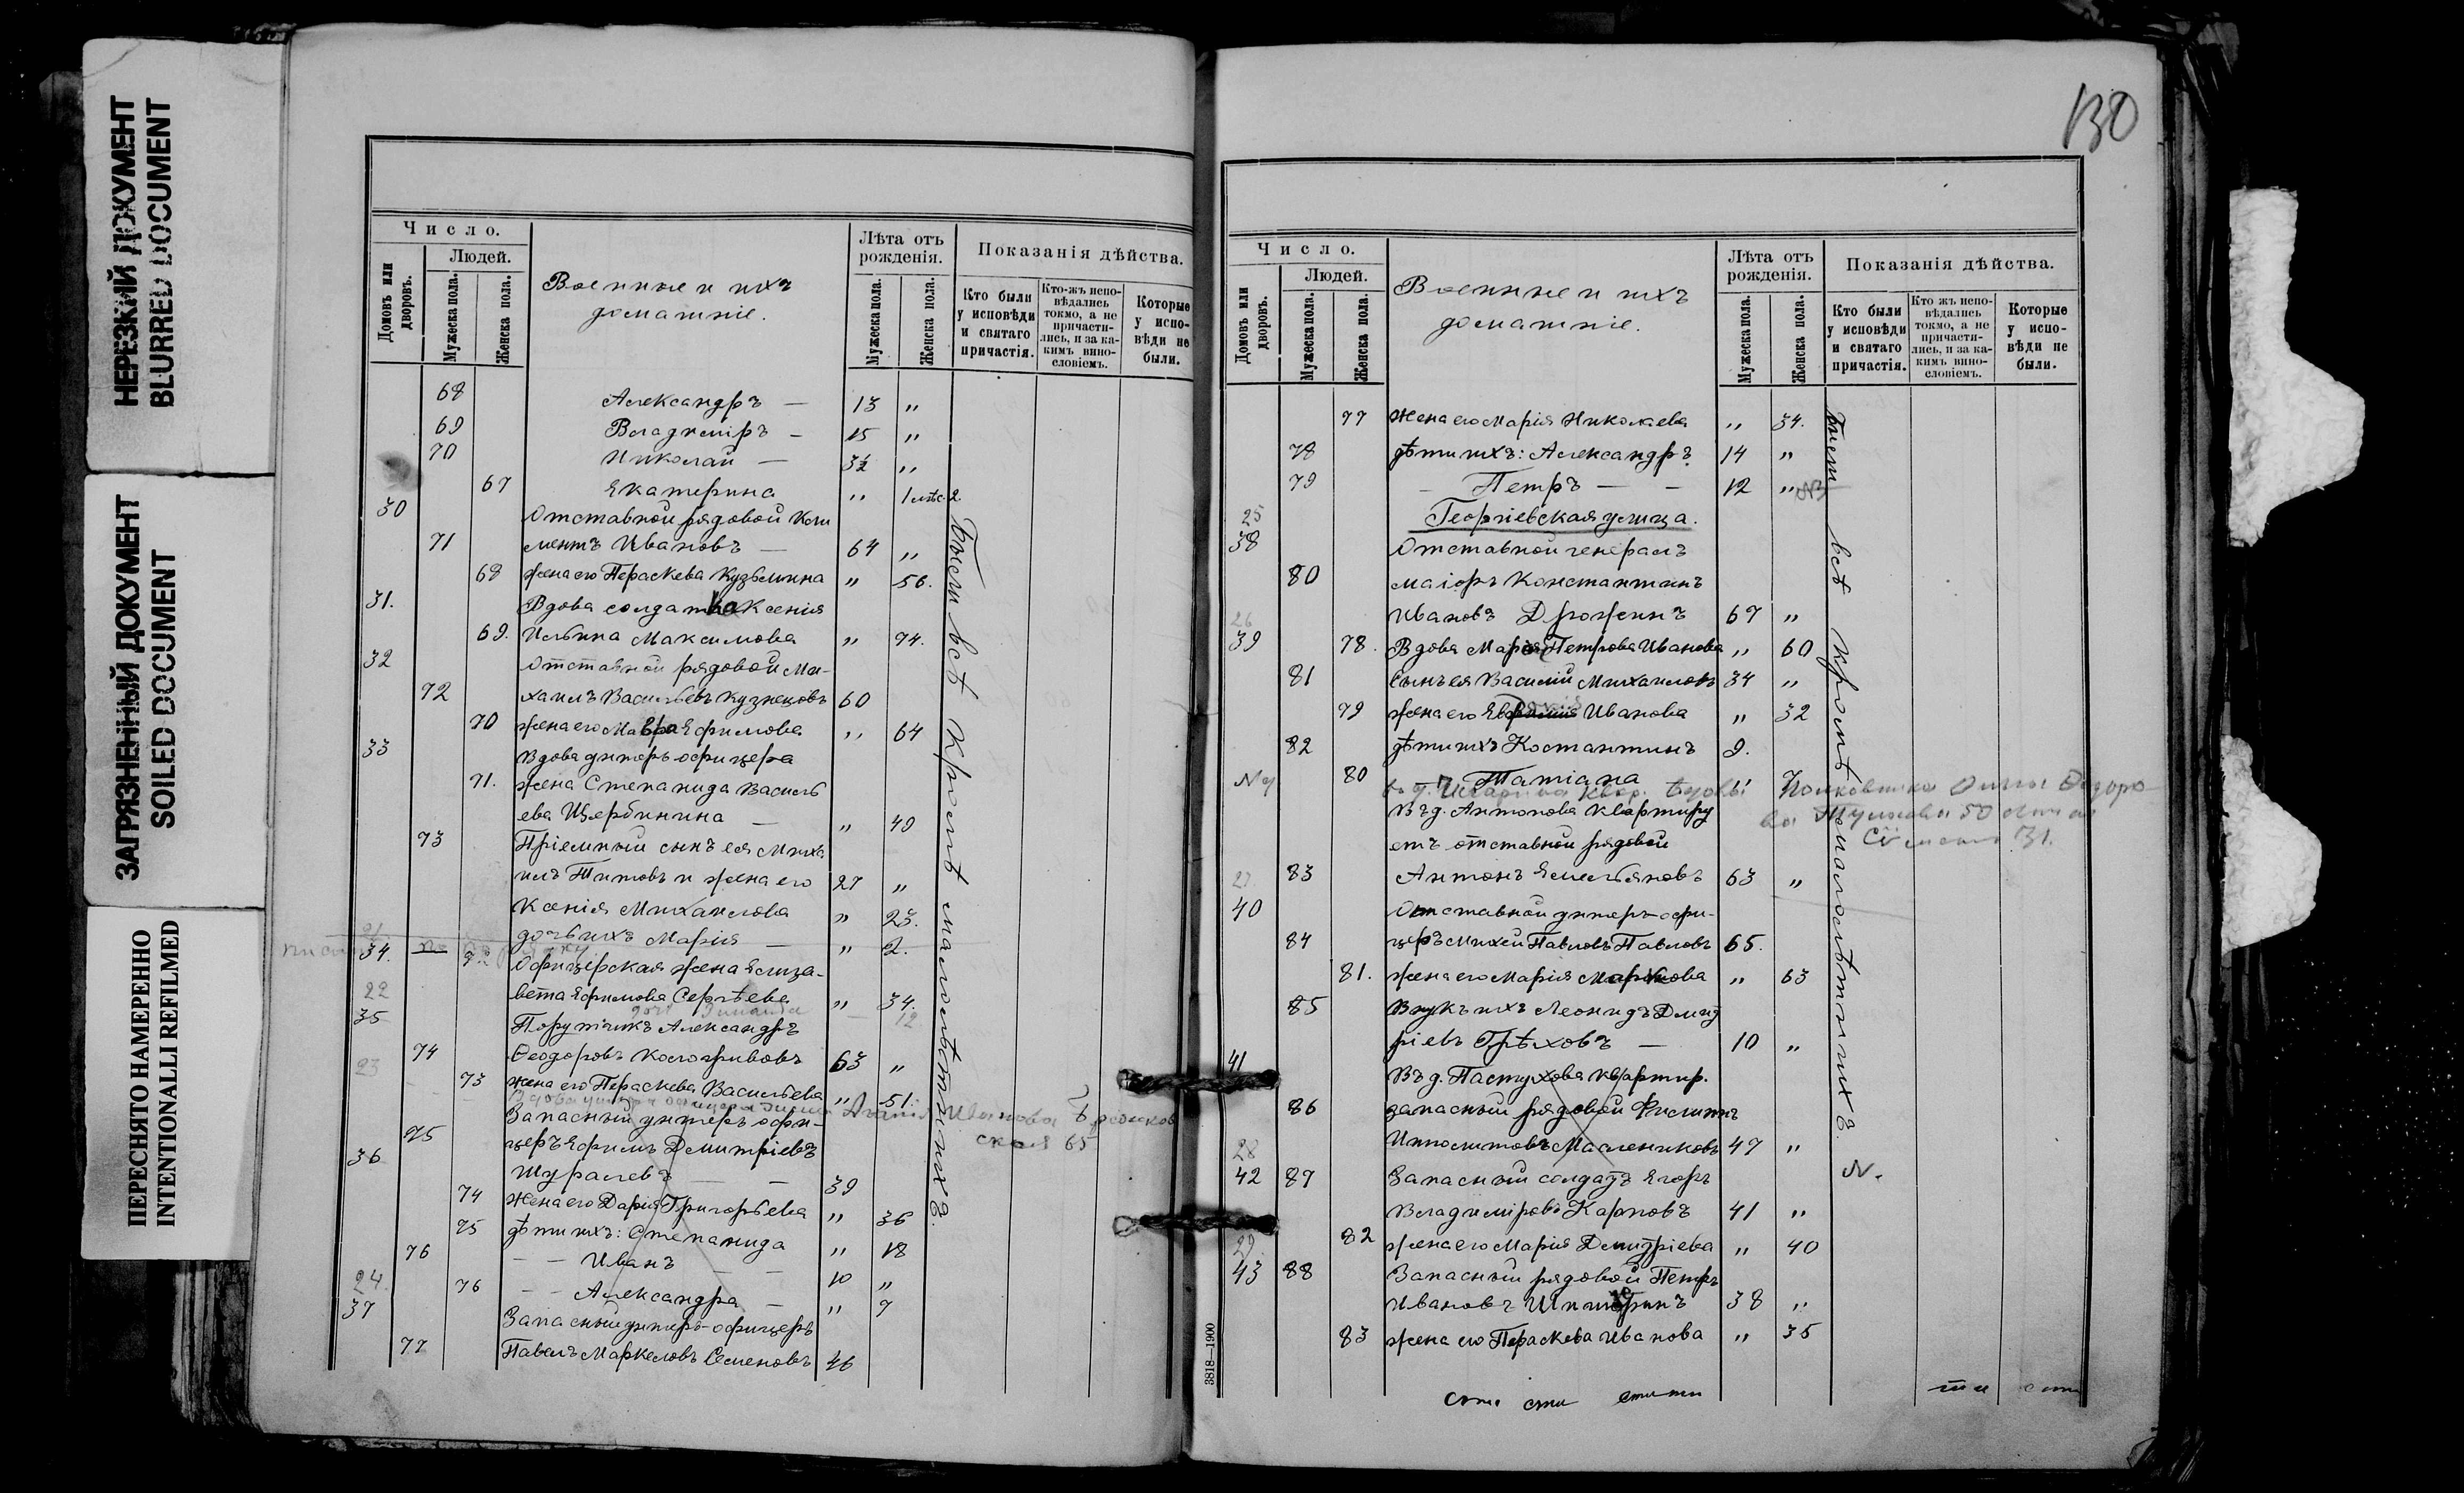 НЕРЕЗКИЙ ДОКУМЕНТ
BLURRED DOCUMENT
ЗАГРЯЗНЕННЫЙ ДОКУМЕНТ
SOILED DOCUMENT
ПЕРЕСНЯТО НАМЕРЕННО
INTENTIONALLI REFILMED
Число.
Людей.
Домовъ или дворовъ.
Мужеска пола.
Женска пола.
Военные и ихъ
домашніе.
Лѣта отъ рожденія.
Мужеска пола.
Женска пола.
Показанія дѣйства.
Кто были у исповѣди и святаго причастія.
Кто-жъ исповѣдались токмо, а не причастились, и за какимъ винословіемъ.
Которые у исповѣди не были.
68 Александръ — 13 "
69 Владиміръ — 15 "
70 Николай — 3½ "
67 Екатерина " 1
30 Отставной рядовой Кли
71 ментъ Ивановъ — 64 "
68 жена его Параскева Кузьмина " 56.
31. Вдова солдатка Ксенія
69. Ильина Максимова " 74.
32 Отставной рядовой Ми-
72 хаилъ Васильевъ Кузнецовъ 60
70 жена его Мавра Ефимова " 64
33 Вдова унтеръ офицера
71. жена Степанида Василь
ева Щербинина — " 49
73 Пріемный сынъ ея Миха
илъ Титовъ и жена его 27 "
Ксенія Михаилова " 23.
дочь ихъ Марія — " 2.
21
34. 72 Офицерская жена Елиза-
вета Ефимова Сергѣева " 34.
22
12
35 Поручикъ Александръ
74 Ѳеодоровъ Кологривовъ 63 "
23
73 жена его Параскева Васильева " 51.
Запасный унтеръ офи-
75 церъ Ефимъ Димитріевъ
36 Шуралевъ — — 39
74 Жена его Дарія Григорьева " 36
75 дѣти ихъ: Степанида " 18
76 — — Иванъ — — 10 "
24.
76 — — Александра — " 7
37 Запасный унтеръ-офицеръ
77 Павелъ Маркеловъ Семеновъ 46
Были всѣ кромѣ малолѣтнихъ.
130
Число.
Людей.
Домовъ или дворовъ.
Мужеска пола.
Женска пола.
Военные и ихъ
домашніе.
Лѣта отъ рожденія.
Мужеска пола.
Женска пола.
Показанія дѣйства.
Кто были у исповѣди и святаго причастія.
Кто жъ исповѣдались токмо, а не причастились, и за какимъ винословіемъ.
Которые у исповѣди не были.
77 Жена его Марія Николаева " 34.
78 дѣти ихъ: Александръ 14 "
79 — Петръ — — 12 "
25
Георгіевская улица.
38 Отставной генералъ
80 маіоръ Константинъ
Ивановъ Дрожжинъ 67 "
26
39 78. Вдова Марія Петрова Иванова " 60
81 Сынъ ея Василій Михаиловъ 34 "
79 жена его Иванова " 32
82 дѣти ихъ Костантинъ 9.
80 Татіана " 7
Въ д. Антонова квартиру
етъ отставной рядовой
27 83 Антонъ Емельяновъ 63 "
40 Отставной унтеръ-офи-
84 церъ Михей Павловъ Павловъ 65.
81. жена его Марія Маркова " 63
85 Внукъ ихъ Леонидъ Дмит
ріевъ Грѣховъ — 10 "
41 Въ д. Пастухова квартир.
86 запасный рядовой Филиппъ
Ипполитовъ Маслениковъ 47 "
28
42 87 Запасный солдатъ Егоръ
Владиміровъ Карповъ 41 "
82 жена его Марія Димитріева " 40
29
43 88 Запасный рядовой Петръ
Ивановъ 38 "
83 жена его Параскева Иванова " 35
всѣ кромѣ малолѣтнихъ.
3818—1900